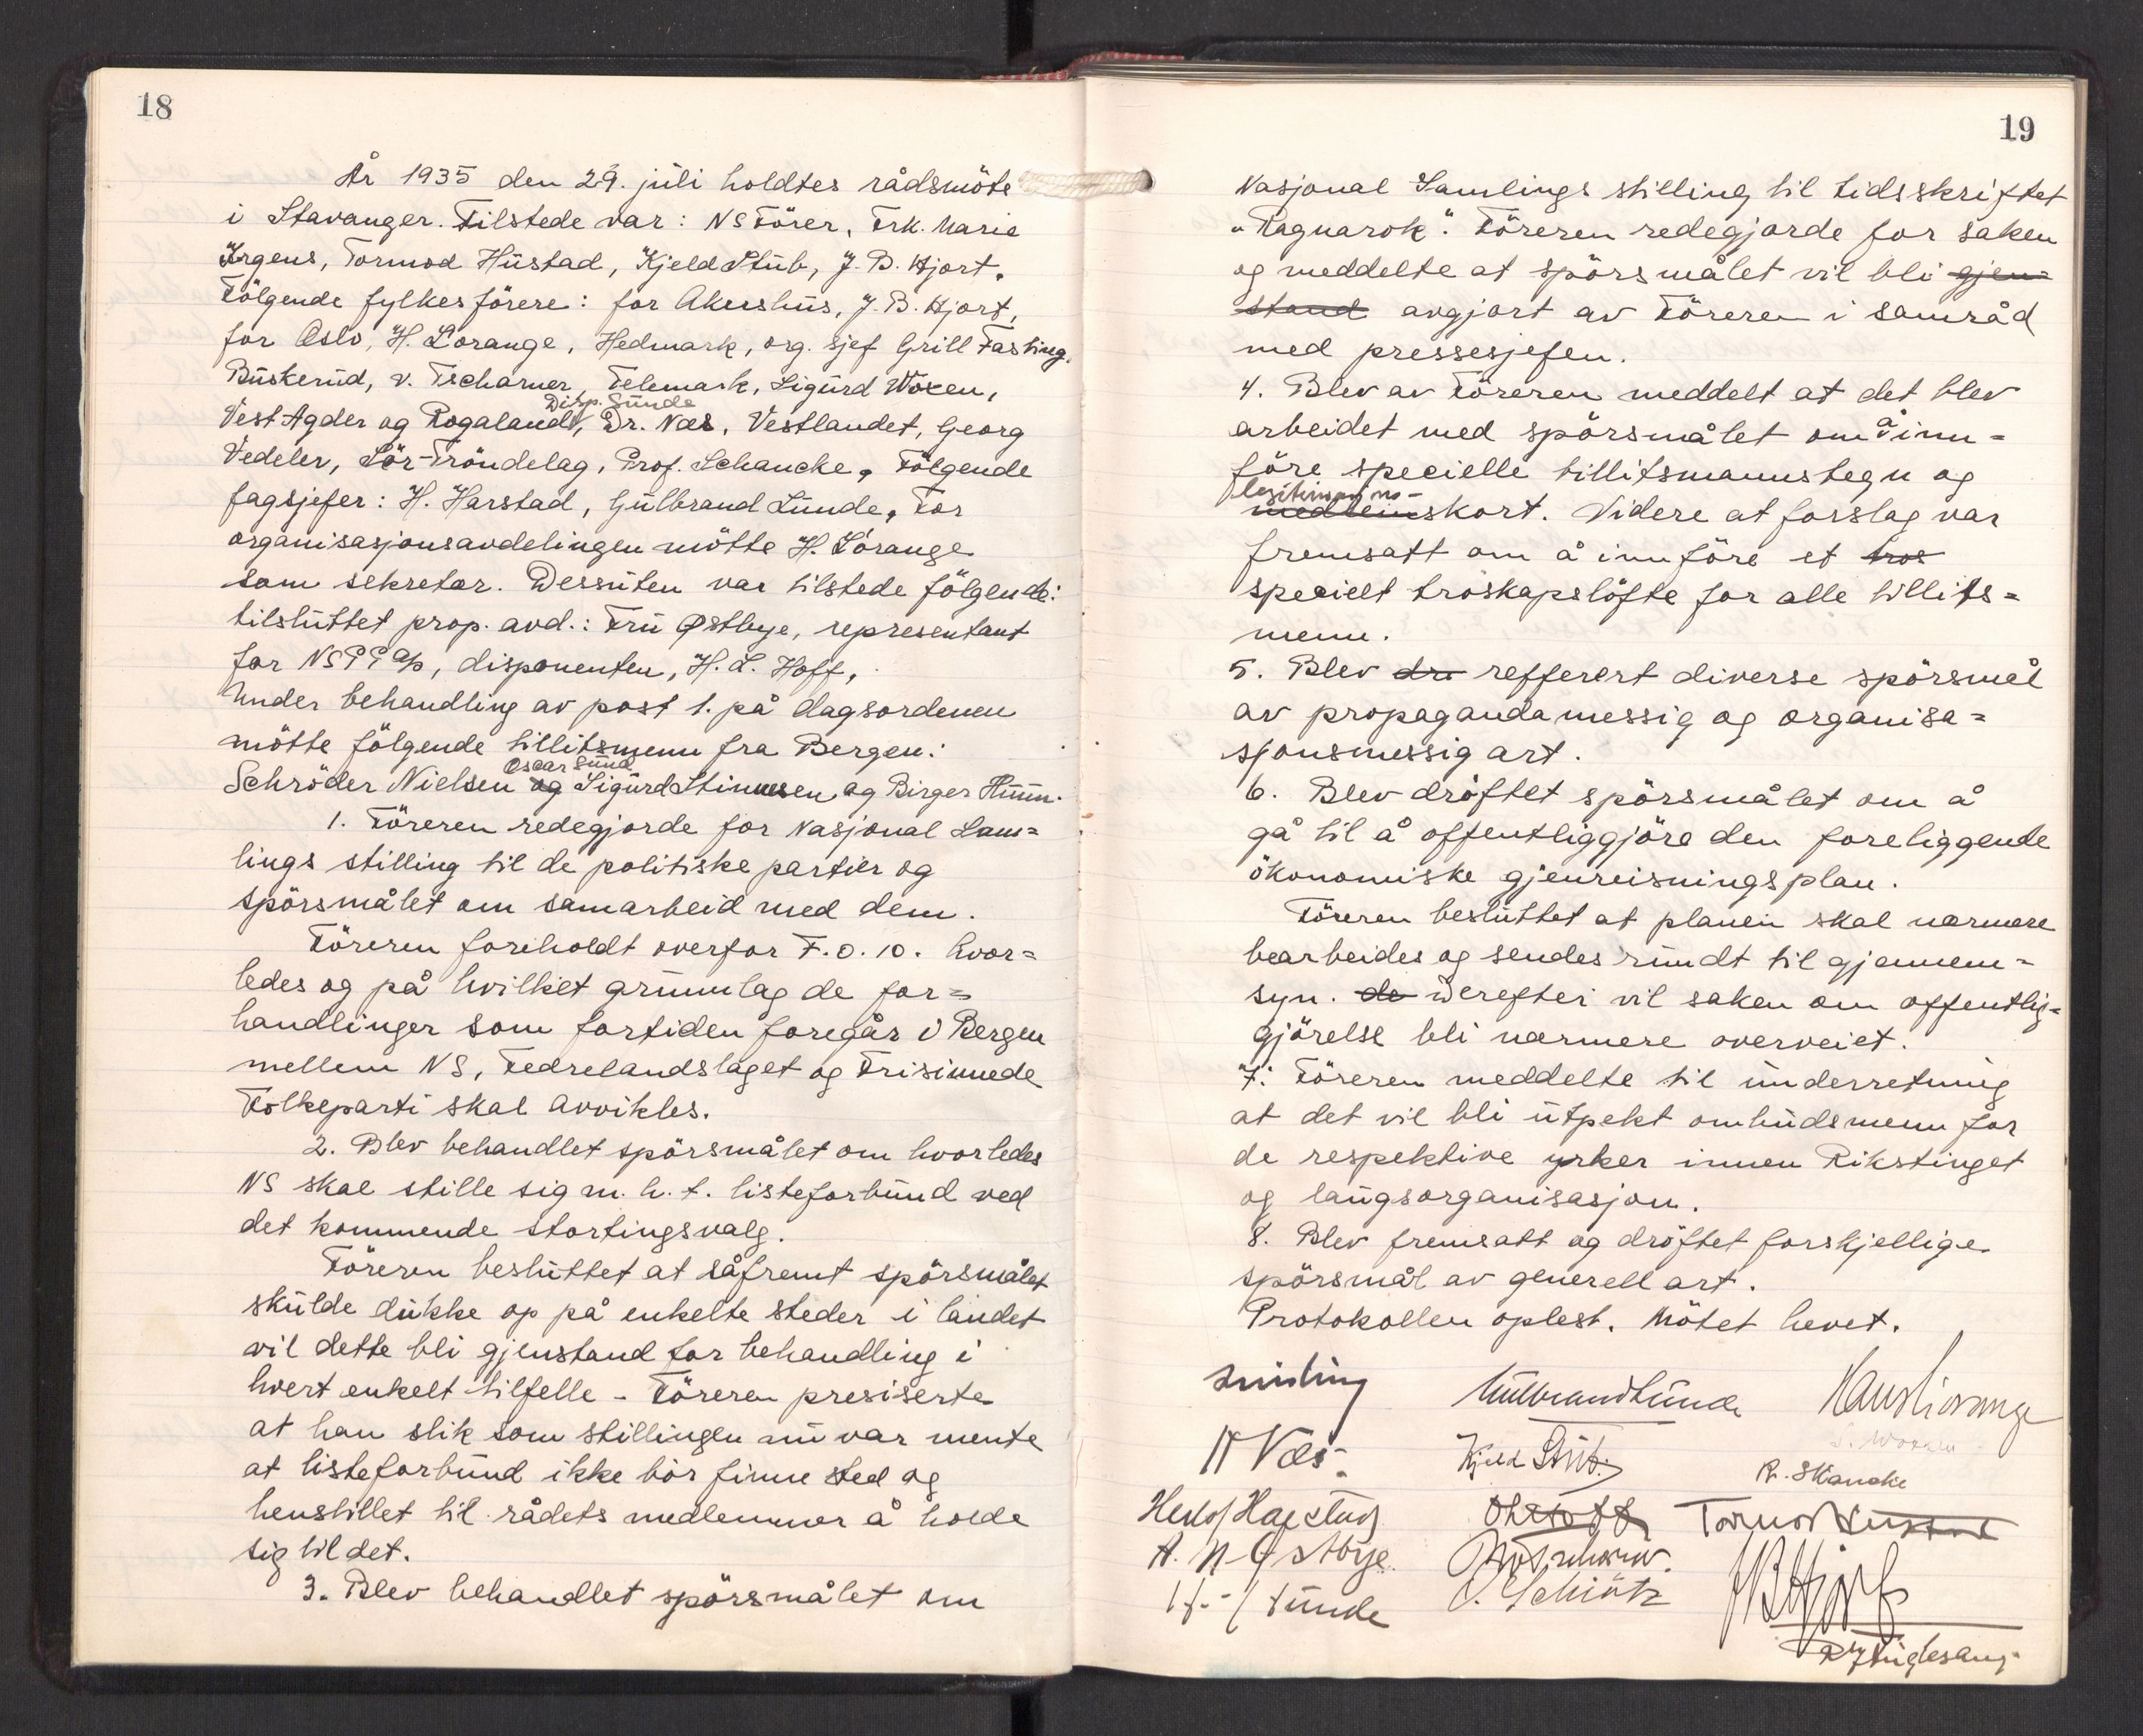 18
År 1935 den 29. juli holdtes rådsmöte
i Stavanger. Tilstede var: NS Förer, Frk. Marie
Irgens, Tormod Hustad, Kjeld Stub, J. B. Hjort.
Följgende fylkesförere: for Akershus, J. B. Hjort,
for Oslo, H. Lorange, Hedmark, org. sjef Grill Fasting.
Buskerud, v. Tscharner, Telemark, Sigurd Woxen,
Disp. Sunde
Vest Agder og Rogaland, Dr. Næs, Vestlandet, Georg
Vedeler, Sör-Tröndelag, Prof. Schancke. Fölgende
fagsjefer: H. Harstad, Gulbrand Lunde. For
organisasjonsavdelingen mötte H. Lorange
som sekretær. Dessuten var tilstede fölgende:
tilsluttet prop. avd.: Fru Østbye, representant
for NSPP A/s, disponenten, H. L. Hoff,
Under behandling av post 1. på dagsordenen
mötte fölgende tillitsmenn fra Bergen:
Oscar Sund
Schröder Nielsen og Sigurd Stinnesen og Birger Huun.
1. Föreren redegjorde for Nasjonal Sam=
lings stilling til de politiske partier og
spörsmålet om samarbeid med dem.
Föreren foreholdt overfor F.O. 10. hvor=
ledes og på hvilket grunnlag de for=
handlinger som fortiden foregår i Bergen
mellem NS, Fedrelandslaget og Frisinnede
Folkeparti skal avvikles.
2. Blev behandlet spörsmålet om hvorledes
NS skal stille sig m. h. t. listeforbund ved
det kommende stortingsvalg.
Föreren besluttet at såfremt spörsmålet
skulde dukke op på enkelte steder i landet
vil dette bli gjenstand for behandling i
hvert enkelt tilfelle - Föreren presiserte
at han slik som stillingen nu var mente
at listeforbund ikke bör finne sted og
henstillet til rådets medlemmer å holde
sig til det.
3. Blev behandlet spörsmålet om
19
Nasjonal Samlings stilling til tidsskriftet
"Ragnarok". Föreren redegjorde for saken
og meddelte at spörsmålet vil bli gjen=
stand avgjort av Föreren i samråd
med pressesjefen.
4. Blev av Föreren meddelt at det blev
arbeidet med spörsmålet om å inn=
före specielle tillitsmannstegn og
legitimasjons-
medlemskort. Videre at forslag var
fremsatt om å innföre et tros
specielt troskapslöfte for alle tillits=
menn.
5. Blev dr refferert diverse spörsmål
av propagandamessig og organisa=
sjonsmessig art.
6. Blev dröftet spörsmålet om å
gå til å offentliggjöre den foreliggende
ökonomiske gjenreisningsplan.
Föreren besluttet at planen skal nærmere
bearbeides og sendes rundt til gjennem=
syn. de Derefter vil saken om offentlig=
gjörelse bli nærmere overveiet.
7. Föreren meddelte til underretning
at det vil bli utpekt ombudsmenn for
de respektive yrker innen Rikstinget
og laugsorganisasjon.
8. Blev fremsatt og dröftet forskjellige
spörsmål av generell art.
Protokollen oplest. Mötet hevet.
Quisling Gulbrand Lunde Hans Lorange
S. Woxen
N Næs Kjeld Stub R. Skancke
Herlof Harstad Tormod Hustad
A. N Østbye
Sunde O. Schiötz J B Hjort
Fuglesang